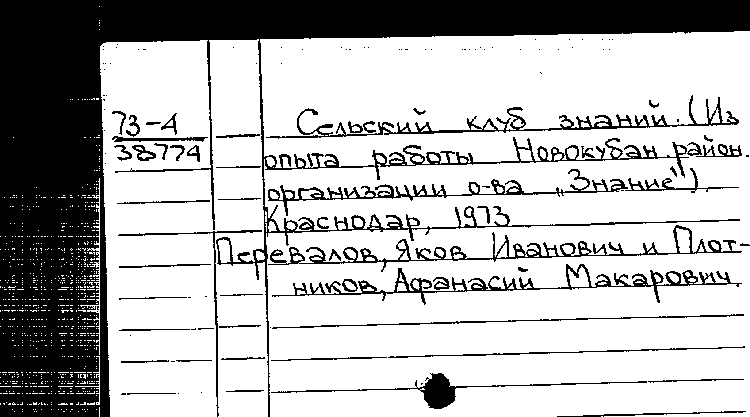 73-4
38774
Сельский клуб знаний. (Из
опыта работы Новокубан. район.
организации о-ва „Знание").
Краснодар, 1973
Перевалов, Яков Иванович и Плот-
ников, Афанасий Макарович.